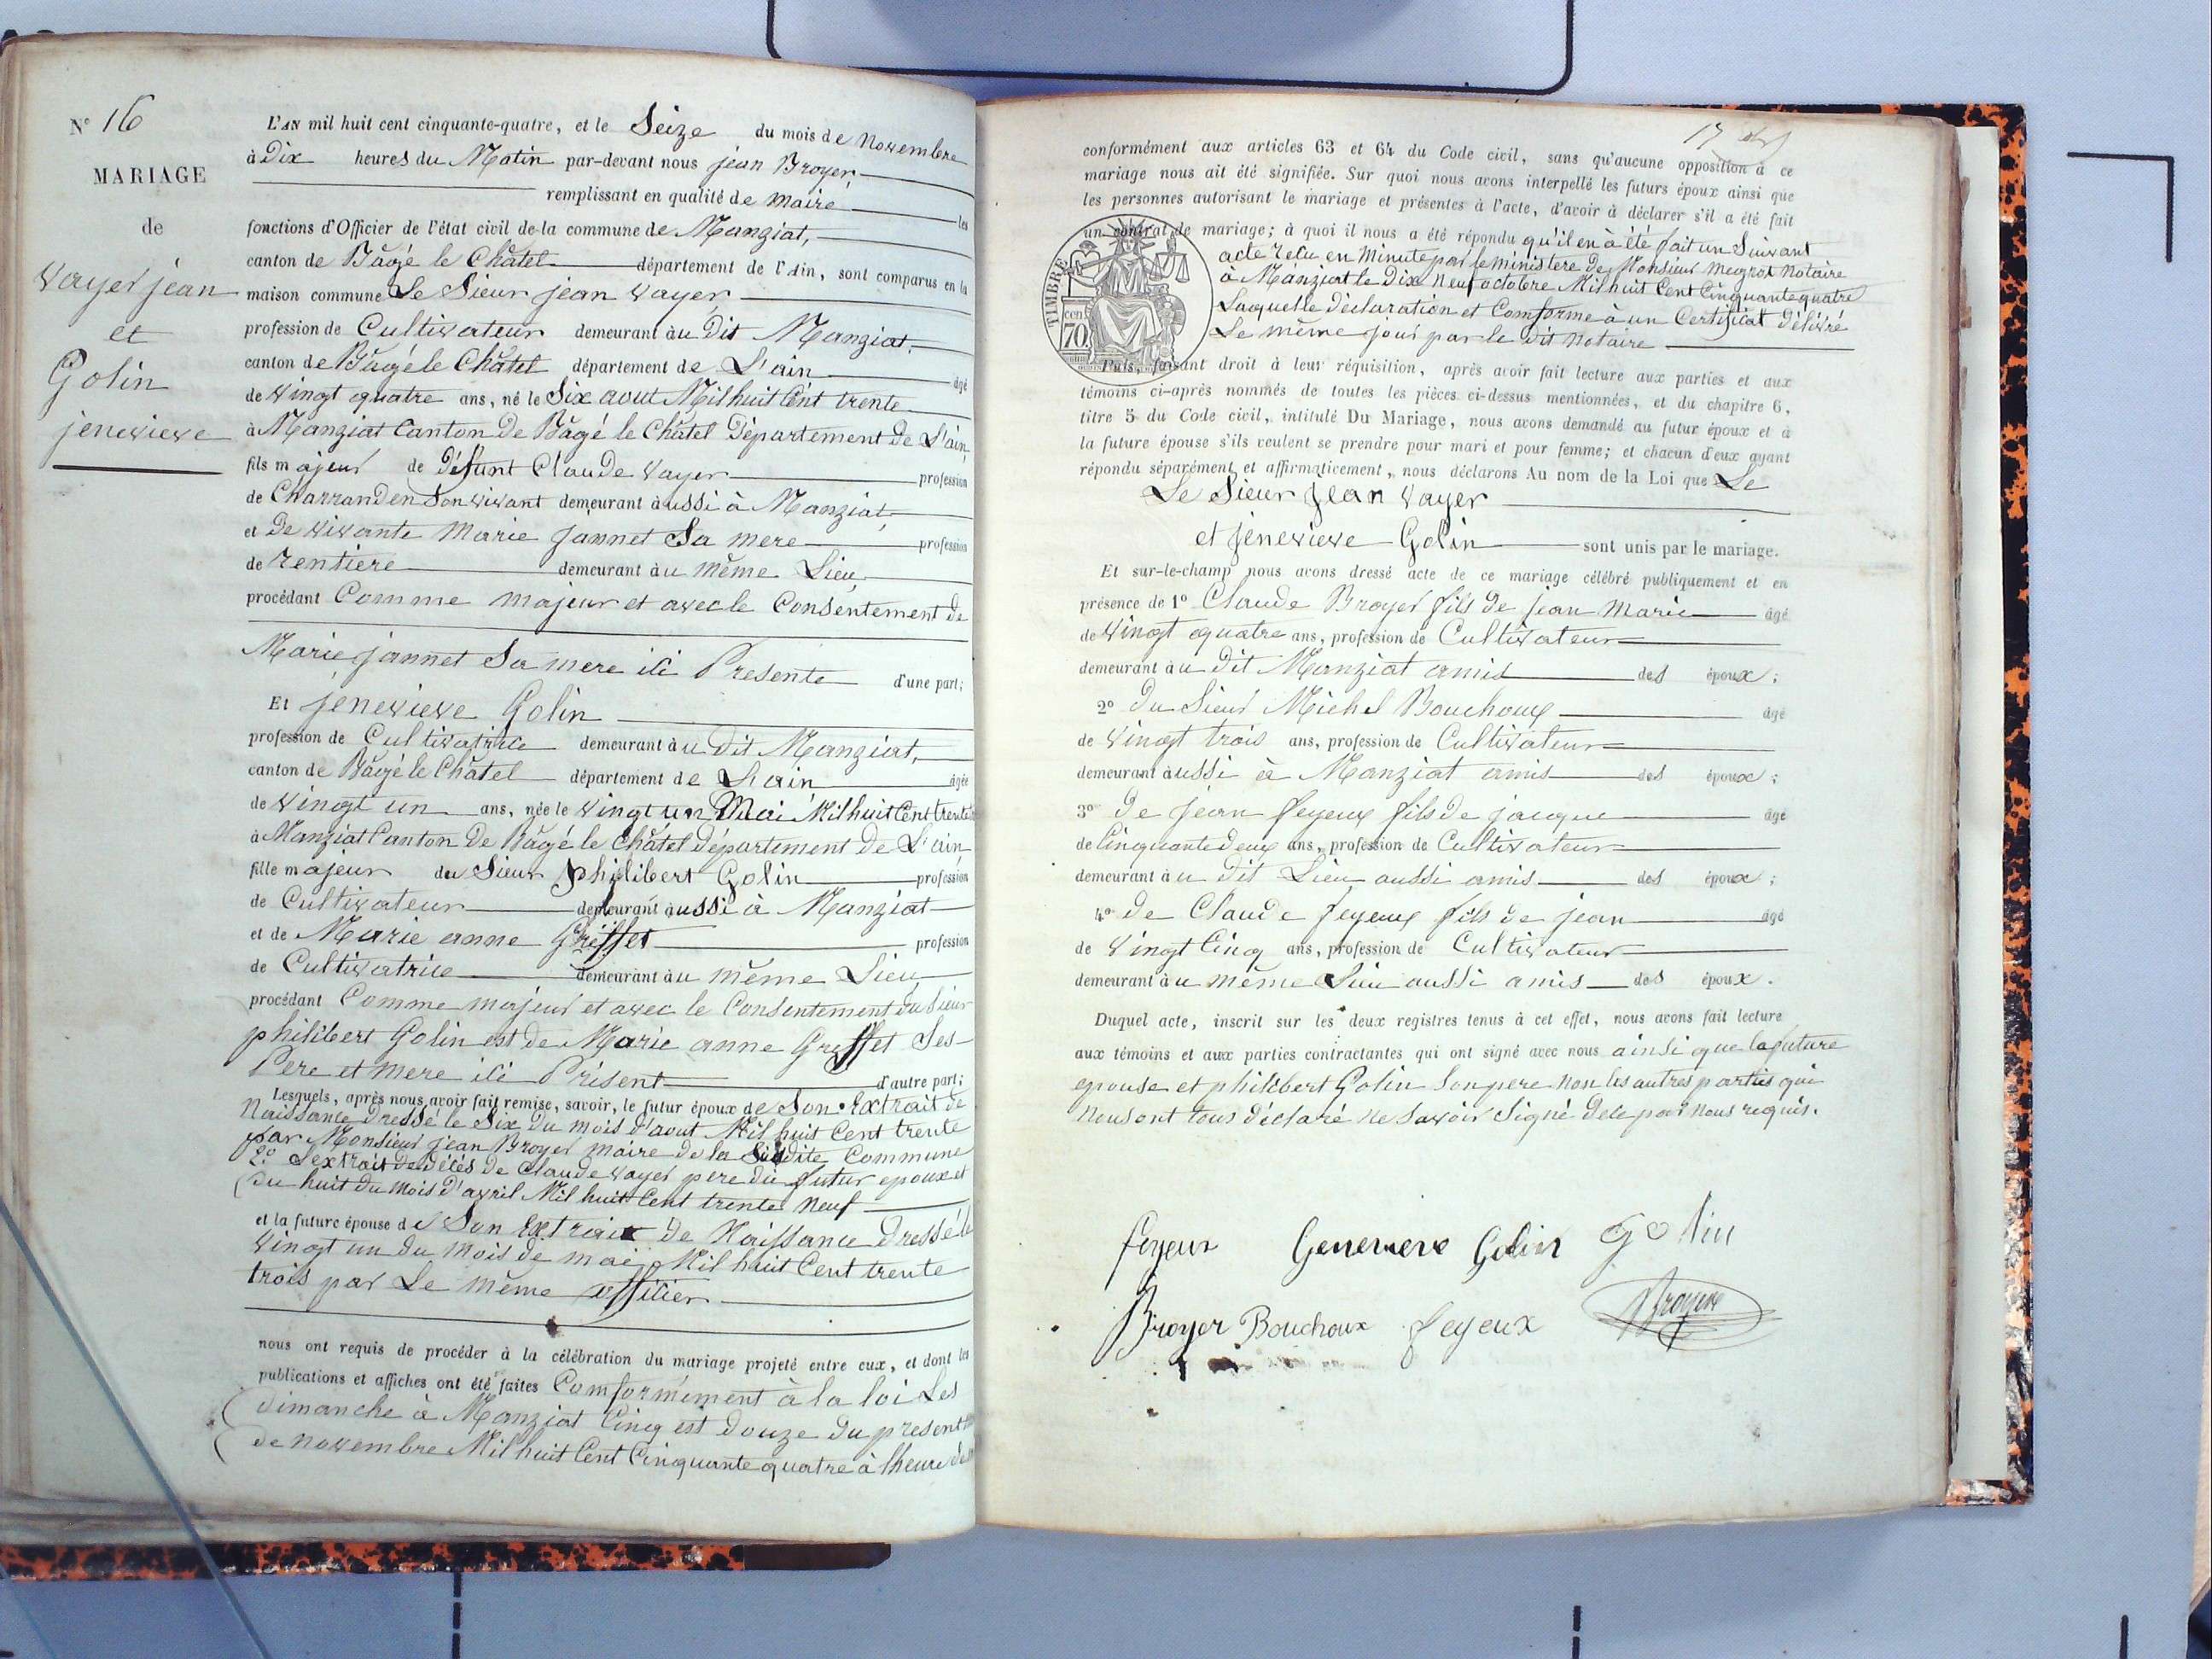 N° 16
MARIAGE
de
Vayer jean
et
Golin
jenevieve
L'AN mil huit cent cinquante-quatre, et le Seize du mois de Novembre
à Dix heures du Matin par-devant nous jean Broyer
remplissant en qualité de maire les
fonctions d'Officier de l'état civil de la commune de Manziat,
canton de Bâgé le Châtel département de l'Ain, sont comparus en la
maison commune Le Sieur jean Vayer
profession de Cultivateur demeurant àu Dit Manziat,
canton de Bâgé le Châtel département de L'ain âgé
de Vingt quatre ans, né le Six aout Mil huit Cent trente
à Manziat Canton De Bâgé le Châtel Département de L'ain,
fils majeur de Défunt Claude Vayer profession
de Charran den Son vivant demeurant àussi à Manziat,
et De vivante Marie Jannet Sa mere profession
de Rentiere demeurant àu même Lieu,
procédant Comme majeur et avec le Consentement de
Marie Jannet Sa mere ici Presente d'une part;
Et jenevieve Golin
profession de Cultivatrice demeurant àu dit Manziat,
canton de Bâgé le Châtel département de L'ain âgée
de Vingt un ans, née le Vingt un Mai Mil huit Cent trente
à Manziat Canton De Bâgé le Châtel Département de L'ain
fille majeur du Sieur philibert Golin profession
de Cultivateur demeurant àussi à Manziat
et de Marie anne Greffet profession
de Cultivatrice demeurant àu même Lieu
procédant Comme majeur et avec le Consentement du Sieur
philibert Golin est de Marie anne Greffet Ses
Pere et mere ici Présent d'autre part;
Lesquels, après nous avoir fait remise, savoir, le futur époux de Son Extrait de
Naissance Dressé le Six du mois d'aout Mil huit Cent trente
par Monsieur jean Broyer maire de la Susdite Commune
2° Lextrait de décés de Claude Vayer pere du futur epoux et
du huit du mois d'avril Mil huit Cent trente Neuf
et la future épouse de Son Extrait de Naissance Dressé le
Vingt un du mois de mai Mil huit Cent trente
trois par Le même officier
nous ont requis de procéder à la célébration du mariage projeté entre eux, et dont les
publications et affiches ont été faites Comformément à la loi Les
dimanche à Manziat Cinq est Douze Du present
de Novembre Mil huit Cent Cinquante quatre à lheure de
17
conformément aux articles 63 et 64 du Code civil, sans qu'aucune opposition à ce
mariage nous ait été signifiée. Sur quoi nous avons interpellé les futurs époux ainsi que
les personnes autorisant le mariage et présentes à l'acte, d'avoir à déclarer s'il a été fait
un contrat de mariage; à quoi il nous a été répondu qu'il en à été fait un Suivant
acte Relu en Minute par le ministere De Monsieur Meyrot Notaire
à Manziat le Dix Neuf octobre Mil huit Cent Cinquante quatre
Laquelle déclaration et Comforme à un Certificat Délivré
Le même jour par le dit Notaire
TIMBRE
70 cen
Puis, faisant droit à leur réquisition, après avoir fait lecture aux parties et aux
témoins ci-après nommés de toutes les pièces ci-dessus mentionnées, et du chapitre 6,
titre 5 du Code civil, intitulé Du Mariage, nous avons demandé au futur époux et à
la future épouse s'ils veulent se prendre pour mari et pour femme; et chacun d'eux ayant
répondu séparément et affirmaticement, nous déclarons Au nom de la Loi que Le
Le Sieur Jean Vayer
et jenevieve Golin sont unis par le mariage.
Et sur-le-champ nous avons dressé acte de ce mariage célébré publiquement et en
présence de 1° Claude Broyer fils de jean Marie âgé
de Vingt quatre ans, profession de Cultivateur
demeurant àu dit Manziat amis des époux;
2° du Sieur Michel Bouchoux âgé
de Vingt trois ans, profession de Cultivateur
demeurant àussi à Manziat amis des époux;
3° de jean feyeux fils de jacque âgé
de Cinquante Deux ans, profession de Cultivateur
demeurant àu dit Lieu aussi amis des époux;
4° de Claude feyeux fils de jean âgé
de Vingt Cinq ans, profession de Cultivateur
demeurant àu même Lieu aussi amis des époux.
Duquel acte, inscrit sur les deux registres tenus à cet effet, nous avons fait lecture
aux témoins et aux parties contractantes qui ont signé avec nous ainsi que la future
epouse et philibert Golin Son pere Non les autres parties qui
Nous ont tous déclaré ne Savoir Signé De ce par Nous requis.
feyeux Genevieve Golin Golin
Broyer Bouchoux feyeux Broyer